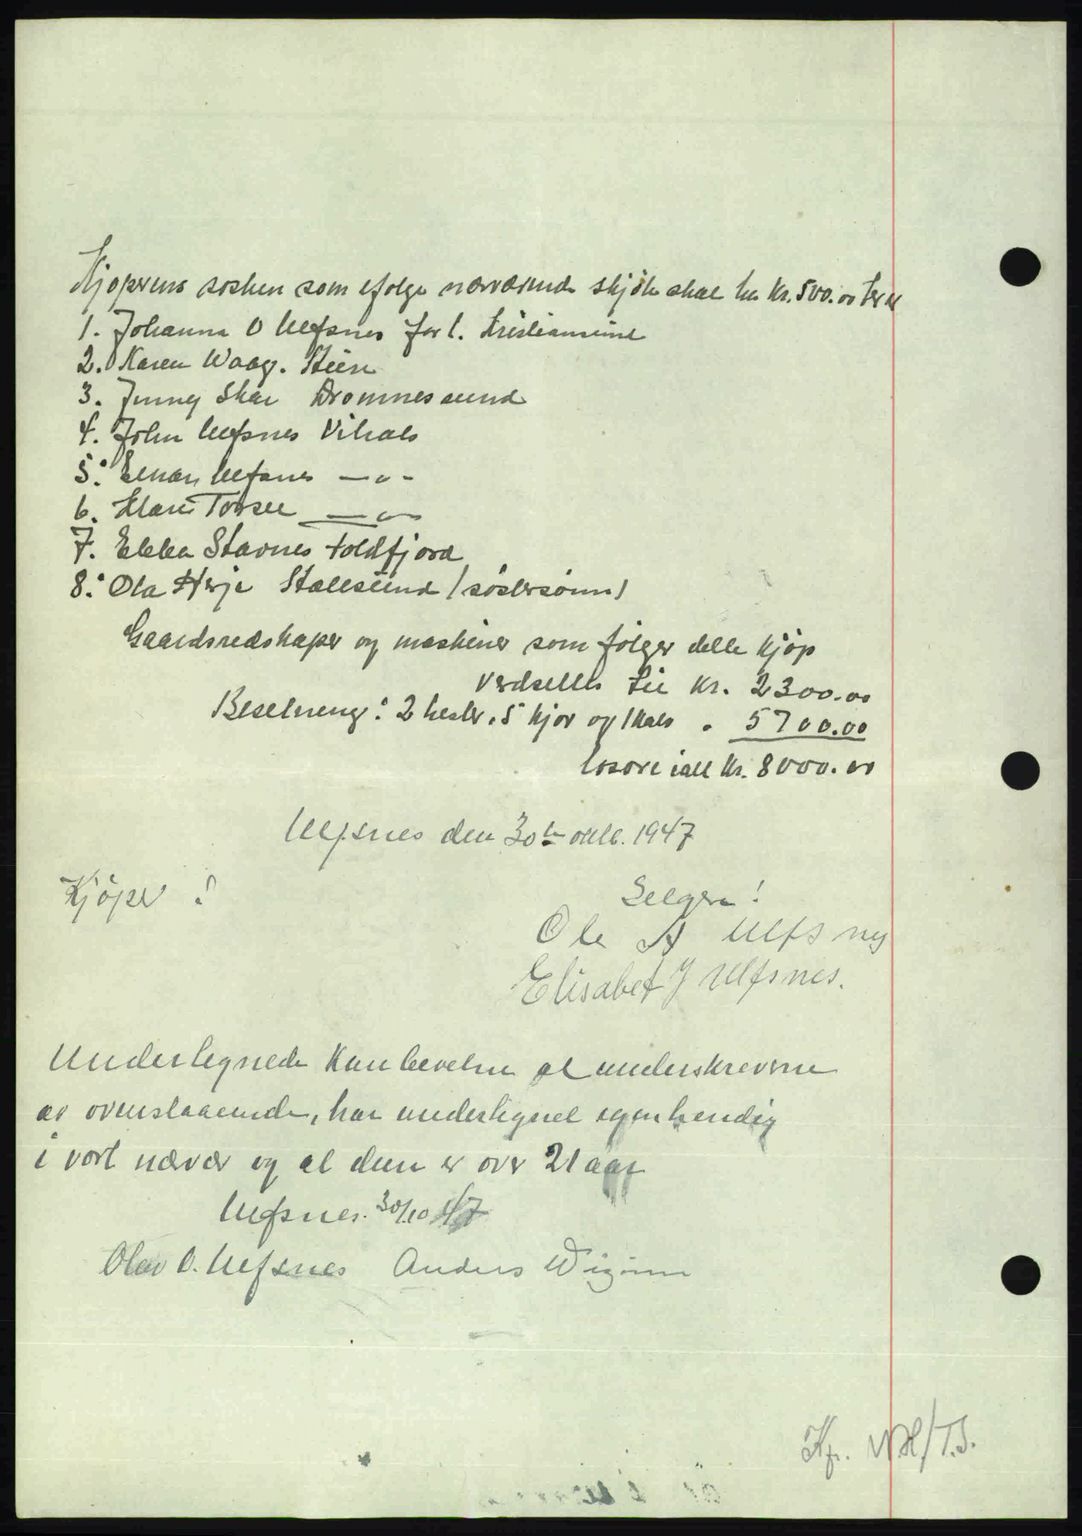 Kjøperens søsken som ifølge nærværende skjöte skal ha Kr. 500.00 hver
1. Johanna O Ulfsnes för l. Kristiansund
2. Karen Waag. Stien
3. Jenny Skar Dromnessund
4. John Ulfsnes Vihals
5. Einar Ulfsnes —„-
6. Klara Torset —„-
7. Ebba Stavnes Foldfjord
8. Ola Herje Stallsund (søstersønn)
Gaardsredskaper og maskiner som følger dette kjøp
verdsettes til Kr. 2300.00
Besetning: 2 hester. 5 kjør og 1 kalv „ 5700.00
løsøre ialt Kr. 8000.00
Ulfsnes den 30te oktb. 1947
Kjöper :
Selger :
Ole A Ulfsnes
Elisabet J Ulfsnes.
Undertegnede kan bevitne at underskriverne
av ovenstaaende, har undertegnet egenhendig
i vort nærvær og at dem er over 21 aar
Ulfsnes. 30/10 47
Olav O. Ulfsnes Anders
Kfr. NH/T.S.